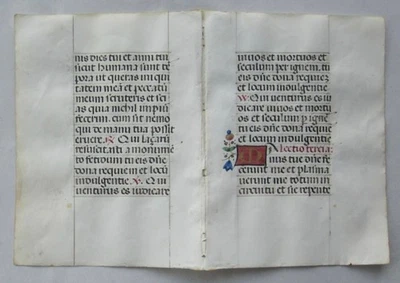 nus dies tui et anni tui
sicut humana sunt tē
pora ut queras iniqui
tatem meā et peccatū
meum scruteris et sci
as quia nichil impiū
fecerim. cum sit nemo
qui de manu tua possit
eruere. R Qui lazarū
resuscitasti a monumē
to fetidum tu eis dn̄e
dona requiem et locū
indulgentie. V Qui
venturus es iudicare
vivos et mortuos et
seculum per ignem. tu
eis dn̄e dona requiē
et locum indulgentie
V Qui venturus es iu
dicare vivos et mortu
os et seculum p ignem
tu eis dn̄e dona requiē
et locum indulgentie
lectio tercia.
Manus tue dn̄e fe
cerunt me et plasma
verunt me totum in
circuitu et sic repente